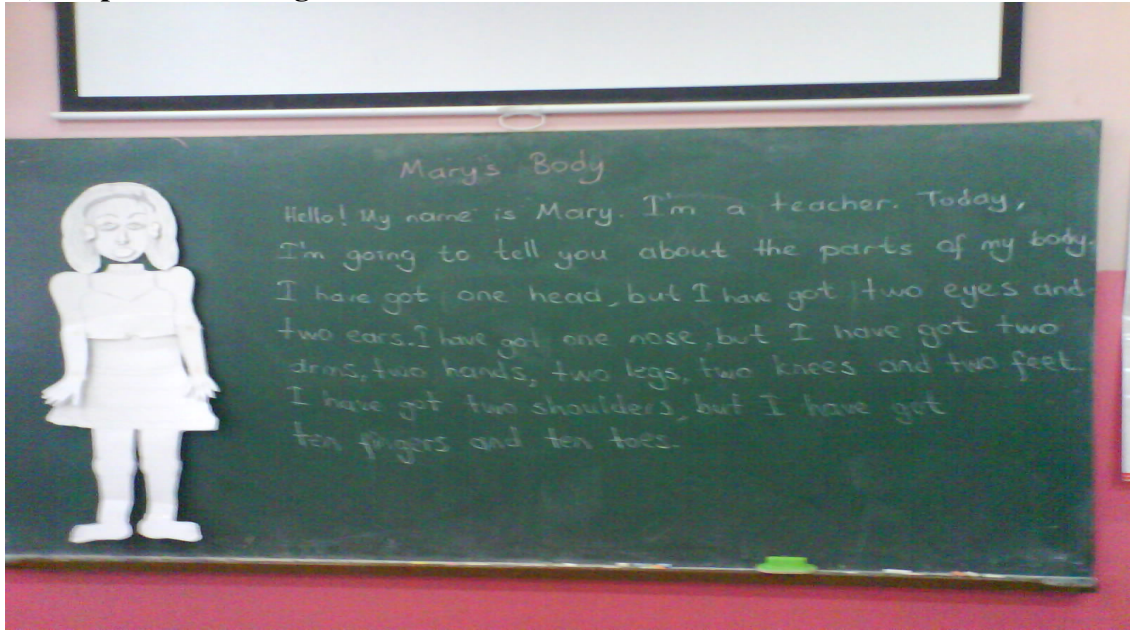 Mary's Body
Hello! My name is Mary. I'm a teacher. Today,
I'm going to tell you about the parts of my body.
I have got one head, but I have got two eyes and
two ears. I have got one nose, but I have got two
arms, two hands, two legs, two knees and two feet.
I have got two shoulders, but I have got
ten fingers and ten toes.